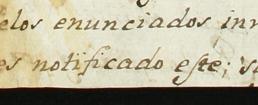 elos enunciados inn
es notificado este; s